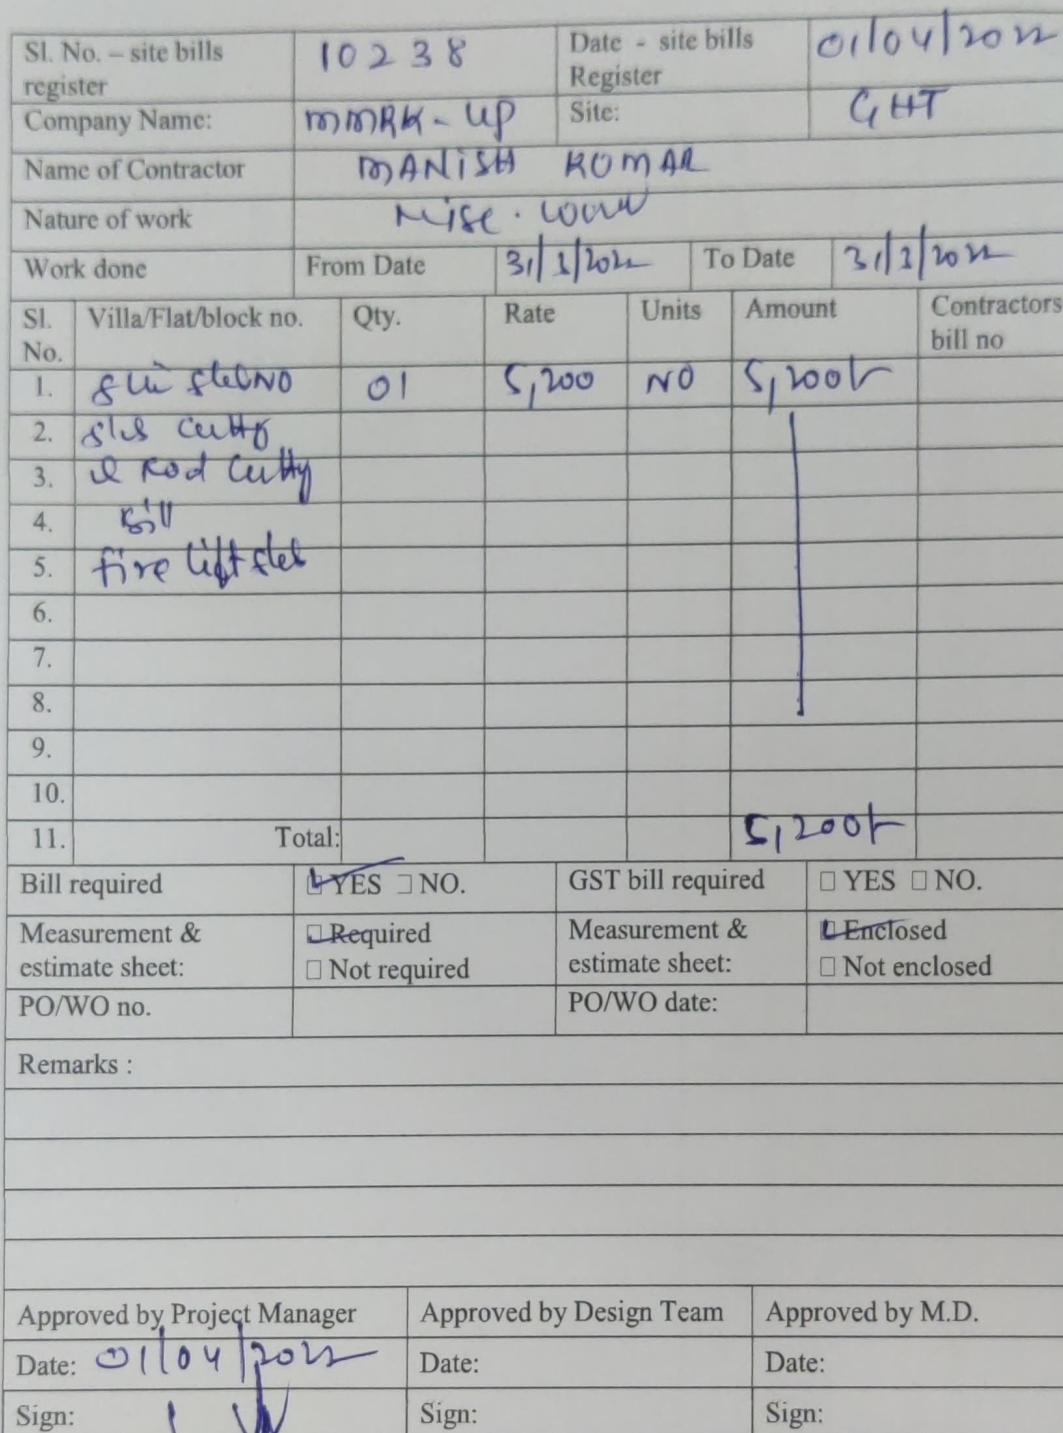 Sl. No. – site bills register 10238 Date - site bills Register 01/04/2022
Company Name: MMRK-UP Site: GHT
Name of Contractor MANISH KUMAR
Nature of work Misc. work
Work done From Date 31/3/2022 To Date 31/3/2022
Sl. No. Villa/Flat/block no. Qty. Rate Units Amount Contractors bill no
1. 01 5,200 NO 5,200/-
2.
3. Rod
4. Bill
5. fire lift
6.
7.
8.
9.
10.
11. Total: 5,200/-
Bill required YES NO. GST bill required YES NO.
Measurement & estimate sheet: Required Measurement & estimate sheet: Enclosed
Not required Not enclosed
PO/WO no. PO/WO date:
Remarks :
Approved by Project Manager Approved by Design Team Approved by M.D.
Date: 01/04/2022 Date: Date:
Sign: Sign: Sign: